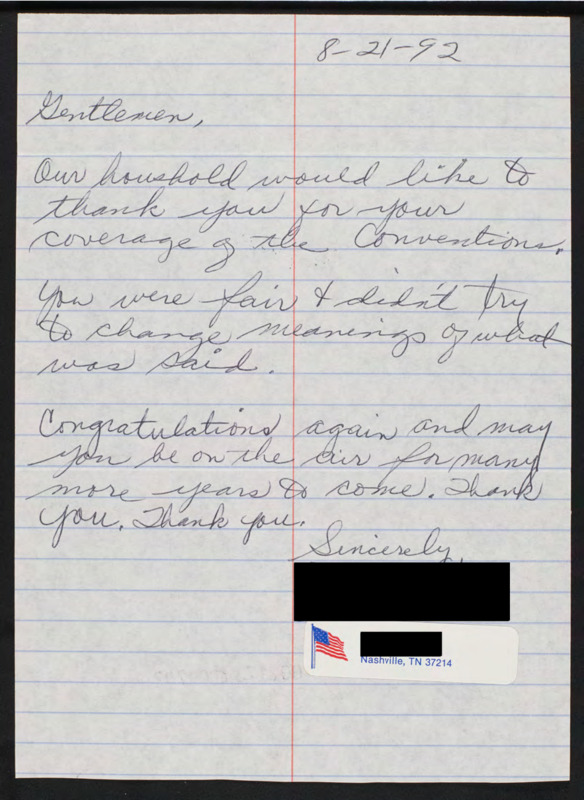 8-21-92
Gentlemen,
Our houshold would like to
thank you for your
coverage of the Conventions.
You were fair & didn't try
to change meanings of what
was said.
Congratulations again and may
you be on the air for many
more years to come. Thank
you. Thank you.
Sincerely,
Nashville, TN 37214